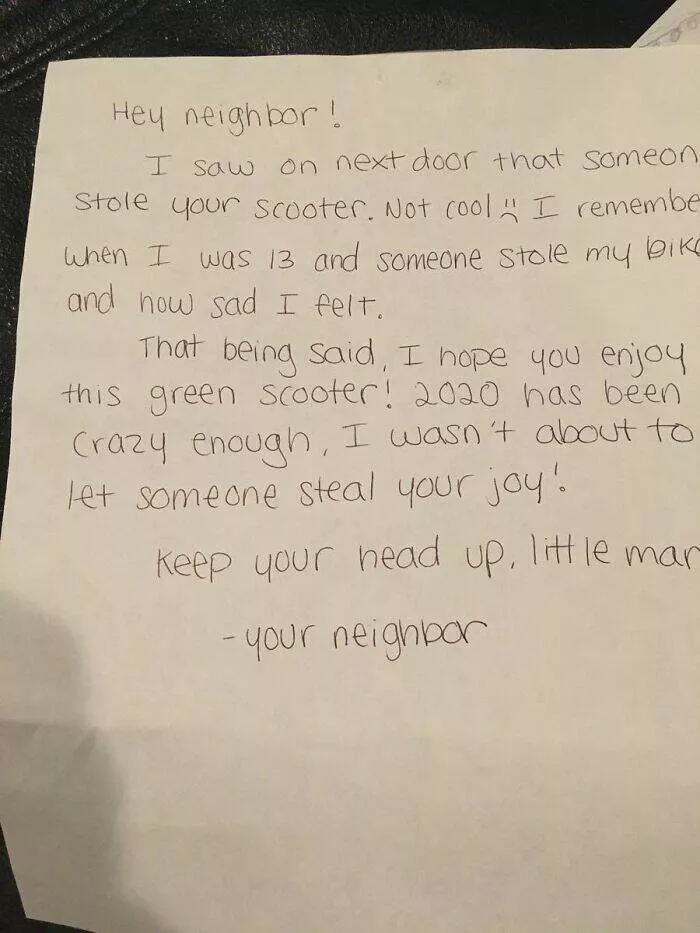 Hey neighbor!
I saw on next door that someon
stole your scooter. Not cool :( I remembe
when I was 13 and someone stole my bik
and how sad I felt.
That being said, I hope you enjoy
this green scooter! 2020 has been
crazy enough, I wasn't about to
let someone steal your joy!
Keep your head up, little man
- your neighbor